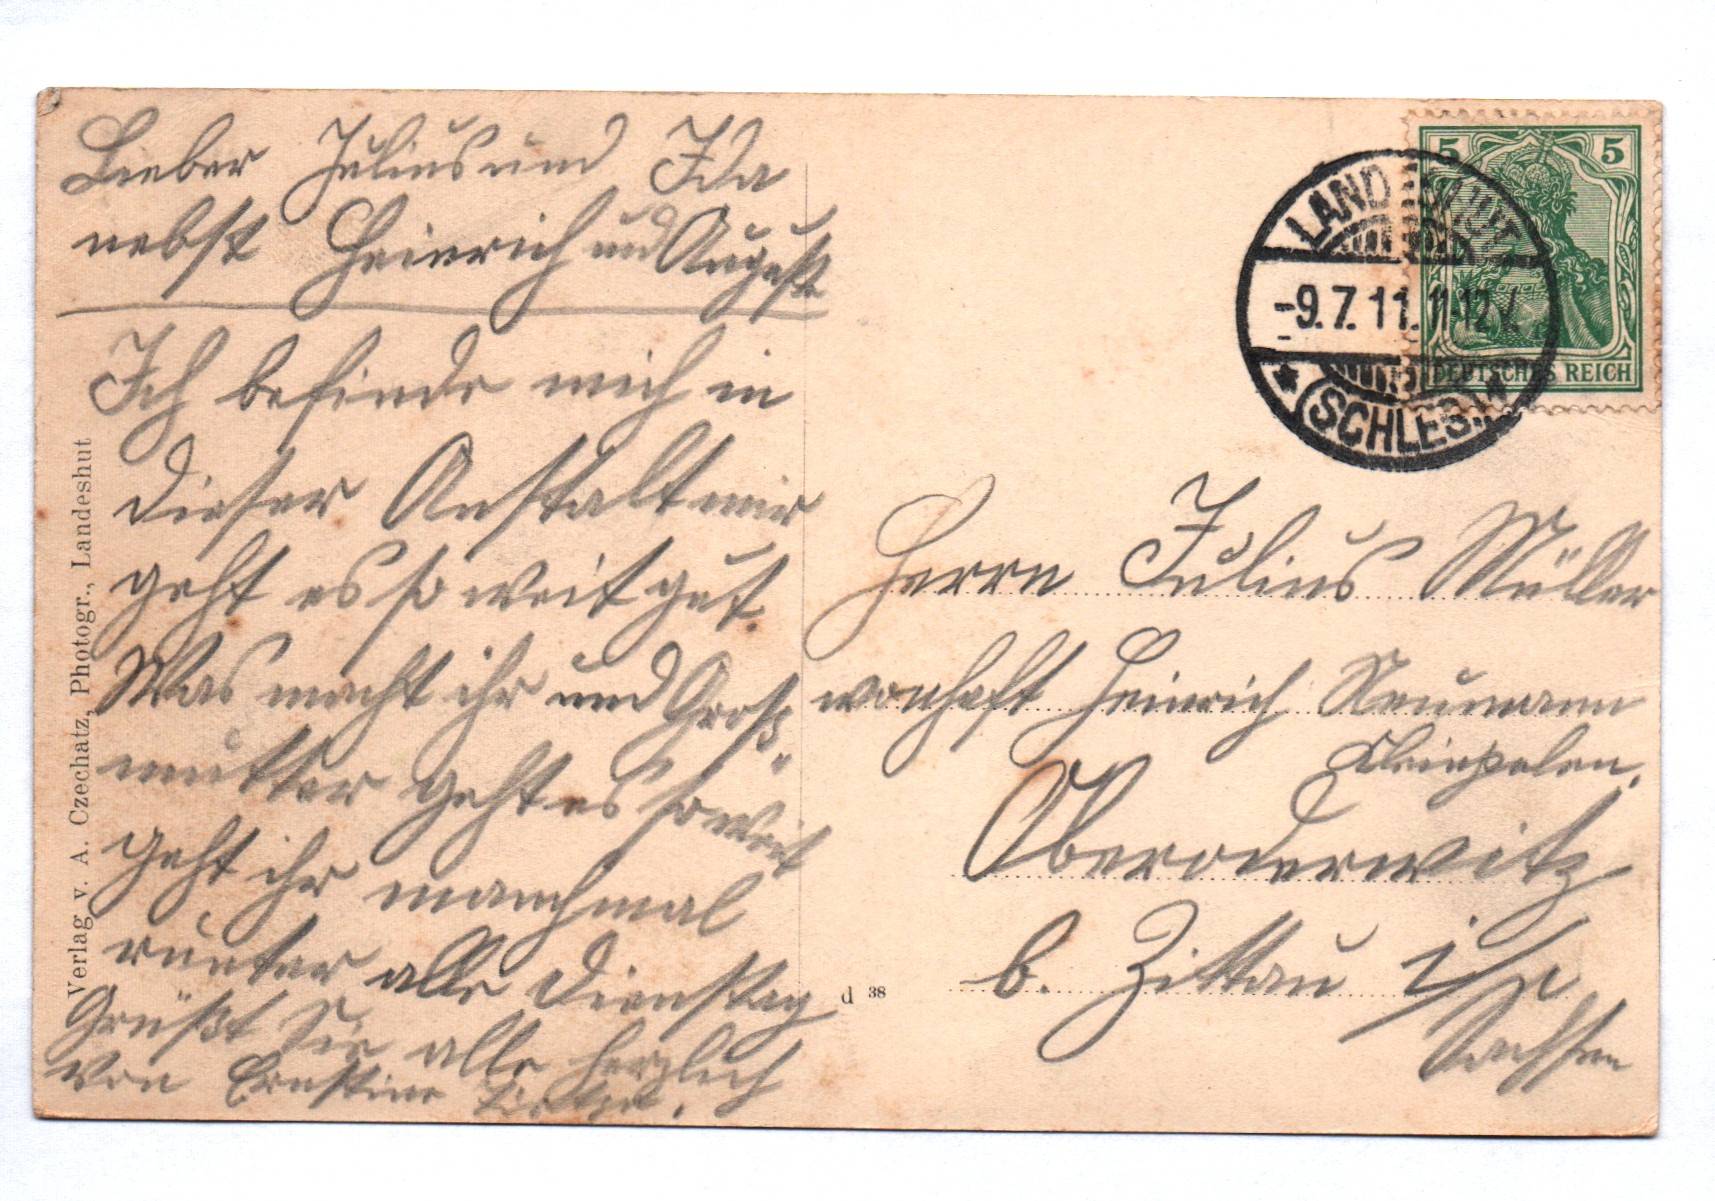 Lieber Julius und Ida
nebst Heinrich und Auguste
Ich befinde mich in
dieser Anstalt mir
geht es so weit gut.
Was macht ihr und Groß-
mutter geht es soweit
geht ihr manchmal
runter alle Dienstag
Grüßt Sie alle herzlich
von Ernstine
Verlag v. A. Czechatz, Photogr., Landeshut
d 38
5 5
DEUTSCHES REICH
LANDESHUT
-9.7.11. 11-12V.
* (SCHLES.) *
Herrn Julius Müller
wonhaft Heinrich Neumann
Oberoderwitz
b. Zittau i/
Sachsen